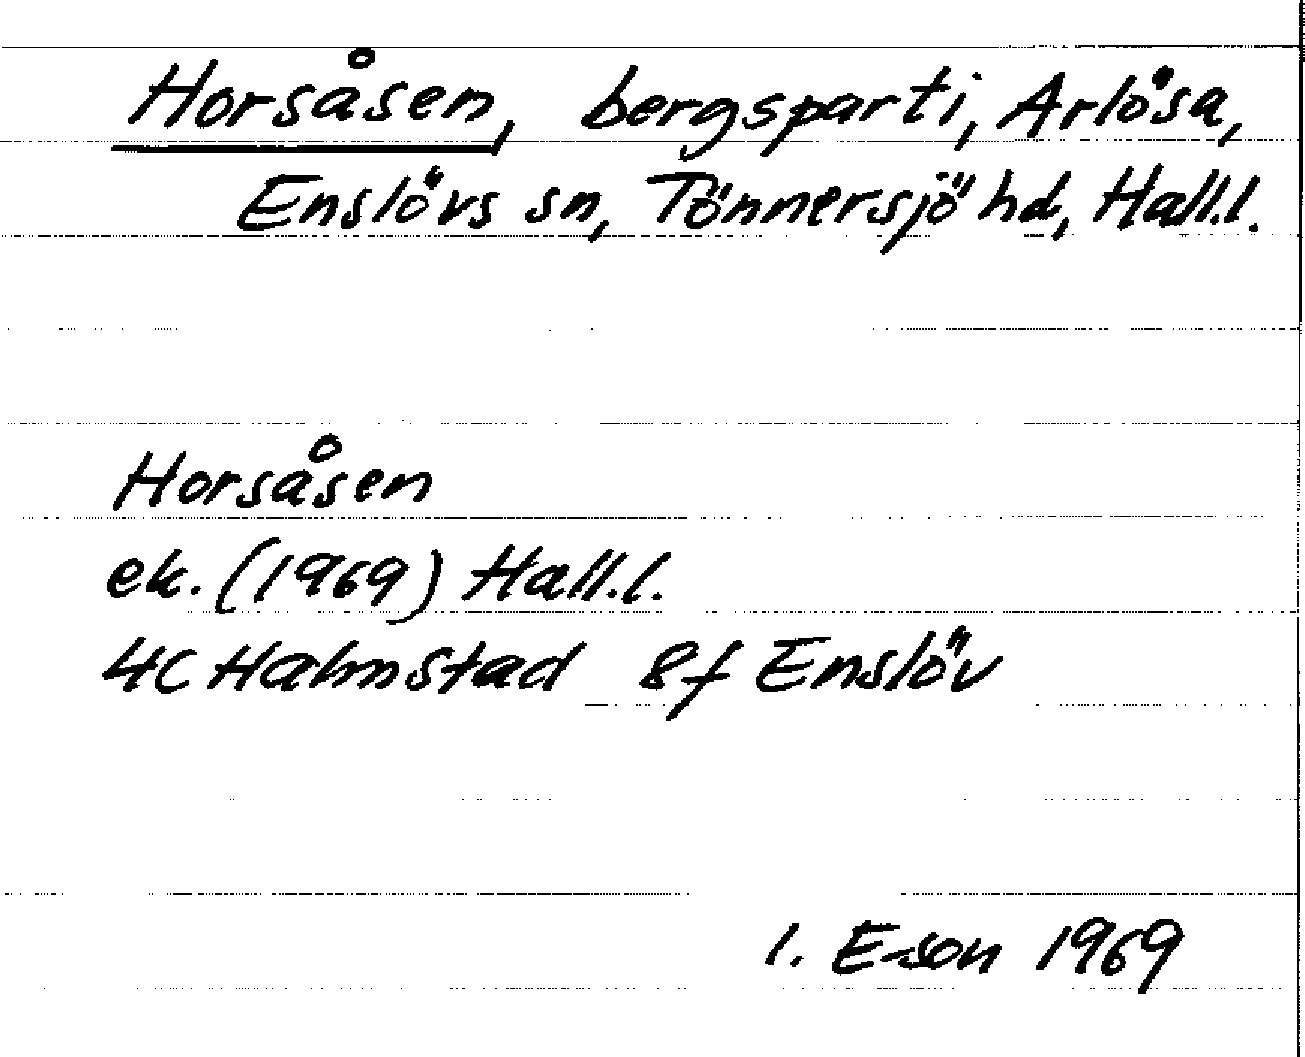 Horsåsen, bergsparti, Arlösa,
Enslövs sn, Tönnersjö hd, Hall.l.
Horsåsen
ek. (1969) Hall.l.
4C Halmstad 8f Enslöv
I. E-son 1969